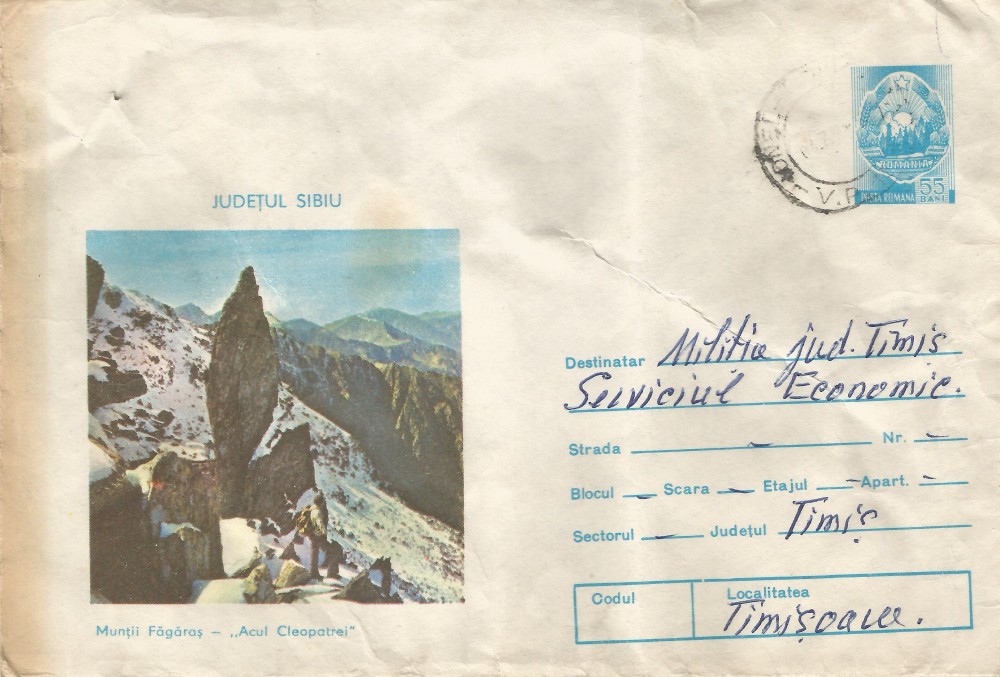 JUDEȚUL SIBIU
ROMANIA
POSTA ROMANA 55 BANI
V.P
Destinatar Miliția jud. Timiș
Serviciul Economic.
Strada — Nr. —
Blocul — Scara — Etajul — Apart. —
Sectorul — Județul Timiș
Codul Localitatea
Timișoara.
Munții Făgăraș – ,,Acul Cleopatrei"